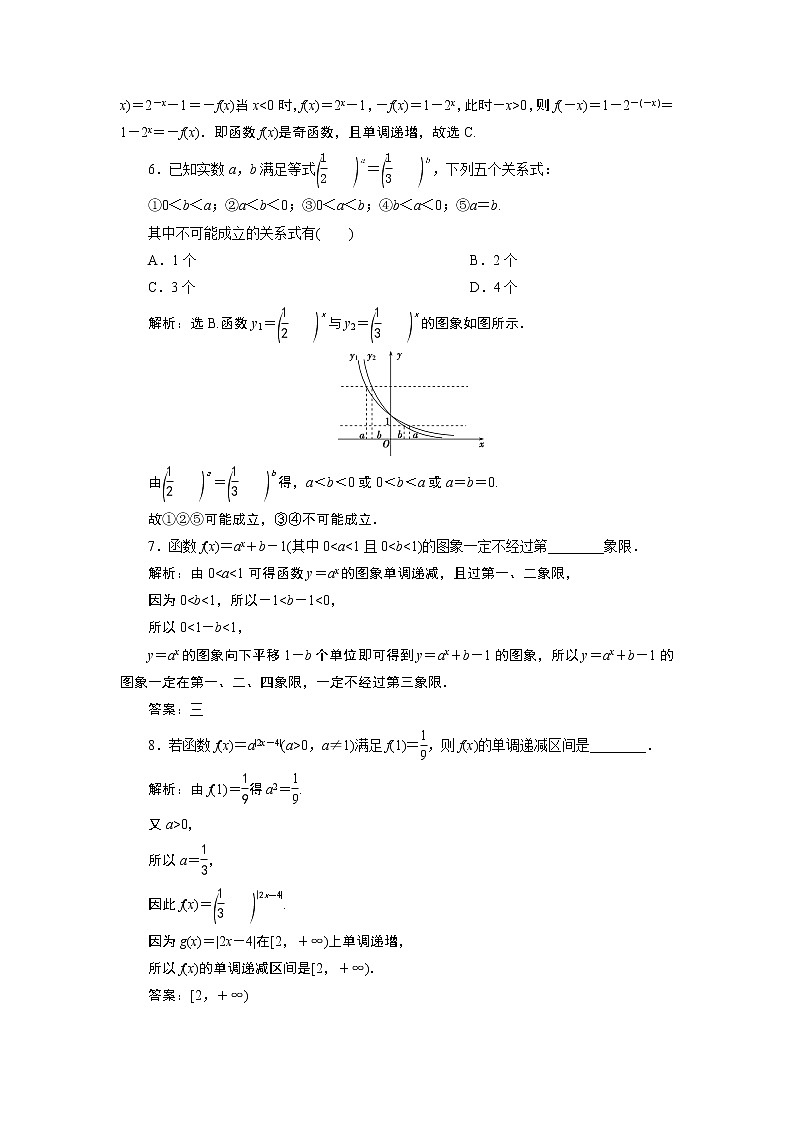 x)=2⁻ˣ-1=-f(x)当x<0时,f(x)=2ˣ-1,-f(x)=1-2ˣ,此时-x>0,则f(-x)=1-2⁻⁽⁻ˣ⁾=
1-2ˣ=-f(x).即函数f(x)是奇函数,且单调递增,故选C.
6.已知实数a,b满足等式(1/2)ᵃ=(1/3)ᵇ,下列五个关系式:
①0<b<a;②a<b<0;③0<a<b;④b<a<0;⑤a=b.
其中不可能成立的关系式有(  )
A.1个 B.2个
C.3个 D.4个
解析:选B.函数y₁=(1/2)ˣ与y₂=(1/3)ˣ的图象如图所示.
y₁ y₂ y
1
a b O b a x
由(1/2)ᵃ=(1/3)ᵇ得,a<b<0或0<b<a或a=b=0.
故①②⑤可能成立,③④不可能成立.
7.函数f(x)=aˣ+b-1(其中0<a<1且0<b<1)的图象一定不经过第________象限.
解析:由0<a<1可得函数y=aˣ的图象单调递减,且过第一、二象限,
因为0<b<1,所以-1<b-1<0,
所以0<1-b<1,
y=aˣ的图象向下平移1-b个单位即可得到y=aˣ+b-1的图象,所以y=aˣ+b-1的
图象一定在第一、二、四象限,一定不经过第三象限.
答案:三
8.若函数f(x)=a^|2x-4|(a>0,a≠1)满足f(1)=1/9,则f(x)的单调递减区间是________.
解析:由f(1)=1/9得a²=1/9.
又a>0,
所以a=1/3,
因此f(x)=(1/3)^|2x-4|.
因为g(x)=|2x-4|在[2,+∞)上单调递增,
所以f(x)的单调递减区间是[2,+∞).
答案:[2,+∞)